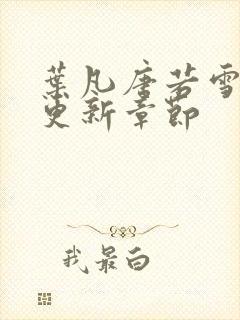 葉凡唐若雪
更新章節
我最白